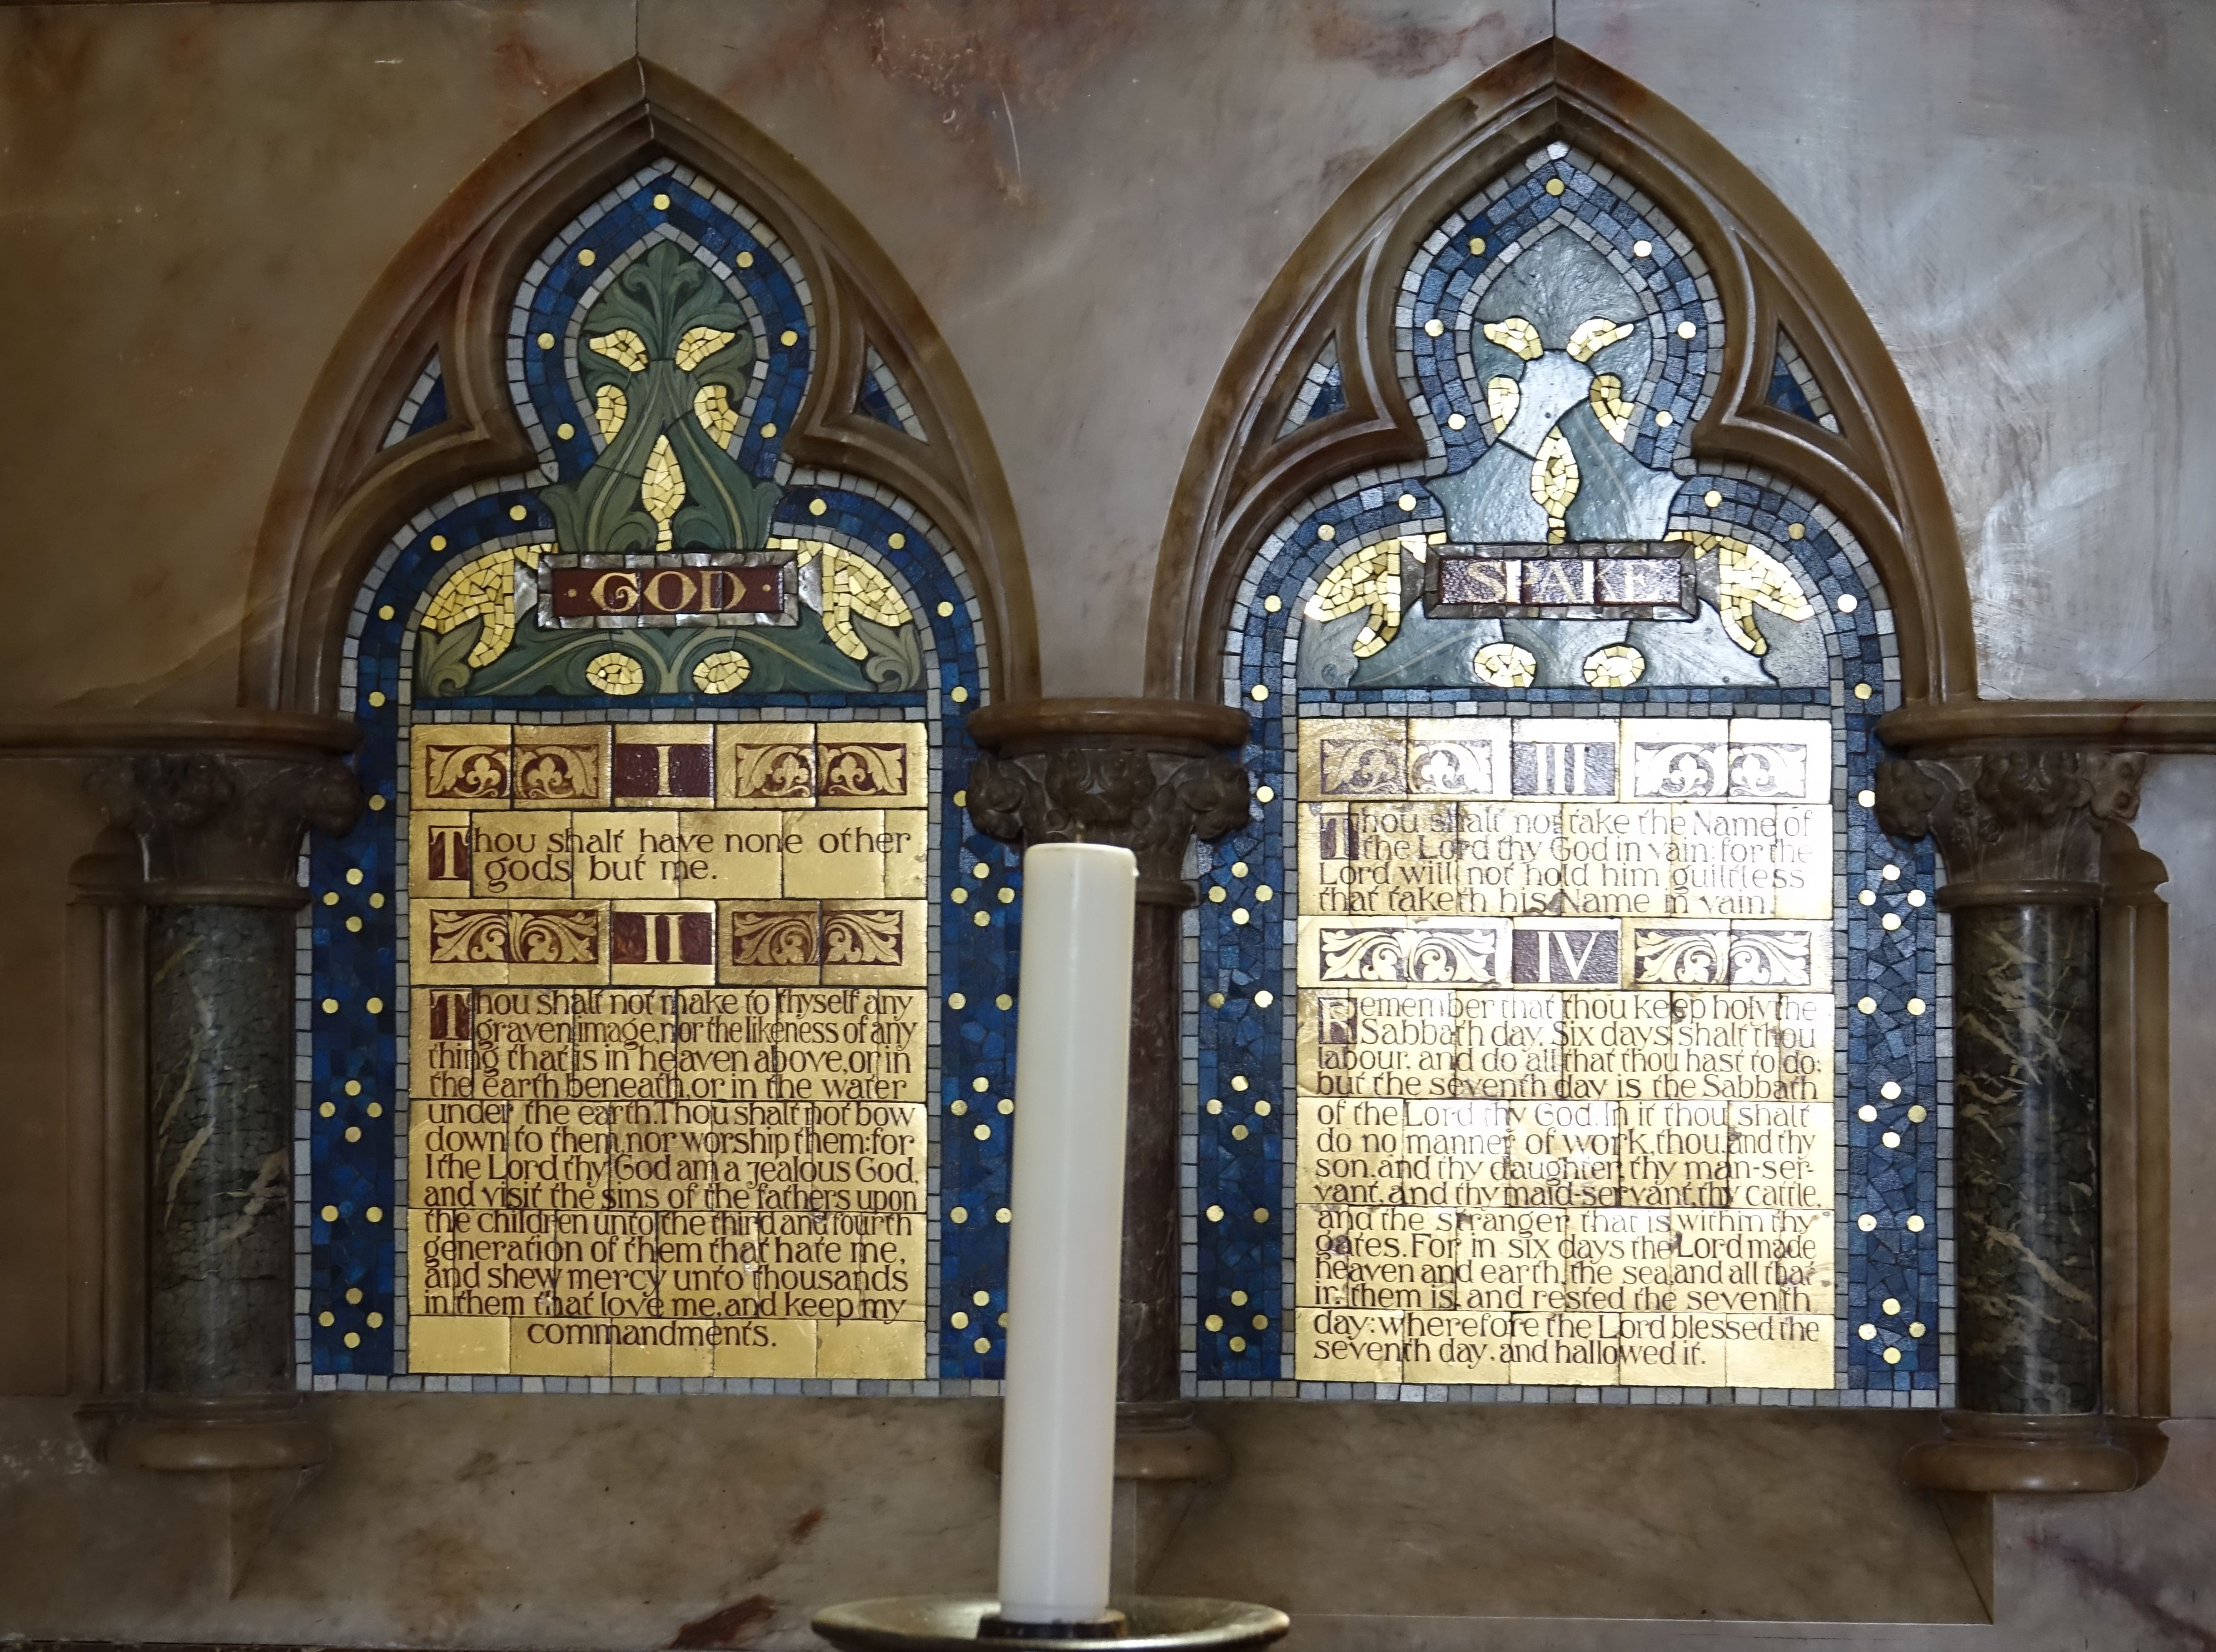 · GOD ·
I
Thou shalt have none other
gods but me.
II
Thou shalt not make to thyself any
graven image, nor the likeness of any
thing that is in heaven above, or in
the earth beneath, or in the water
under the earth. Thou shalt not bow
down to them, nor worship them: for
I the Lord thy God am a jealous God,
and visit the sins of the fathers upon
the children unto the third and fourth
generation of them that hate me,
and shew mercy unto thousands
in them that love me, and keep my
commandments.
SPAKE
III
Thou shalt not take the Name of
the Lord thy God in vain: for the
Lord will not hold him guiltless
that taketh his Name in vain.
IV
Remember that thou keep holy the
Sabbath day. Six days shalt thou
labour, and do all that thou hast to do;
but the seventh day is the Sabbath
of the Lord thy God. In it thou shalt
do no manner of work, thou, and thy
son, and thy daughter, thy man-ser-
vant, and thy maid-servant, thy cattle,
and the stranger that is within thy
gates. For in six days the Lord made
heaven and earth, the sea, and all that
in them is, and rested the seventh
day: wherefore the Lord blessed the
seventh day, and hallowed it.